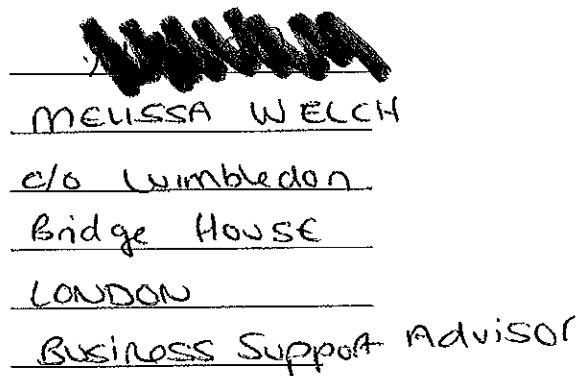 MELISSA WELCH
c/o Wimbledon
Bridge House
LONDON
Business Support Advisor